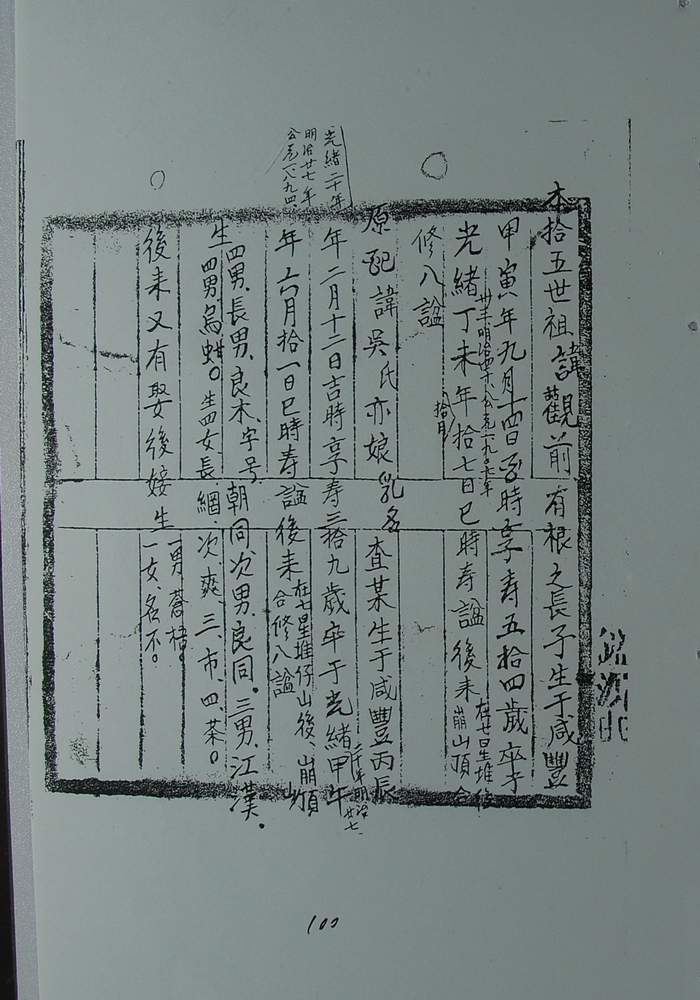 本拾五世祖諱觀前有根之長子生于咸豐
甲寅年九月十四日 時享壽五拾四歲卒于
光緒丁未年拾七日巳時寿謚後来
拾月
崩山頂合
修八謚
原配諱吳氏亦娘乳名查某生于咸豐丙辰
年二月十二日吉時享寿三拾九歲卒于光緒甲午
明治廿七
光緒二十年
明治廿七年
公元一八九四
年六月拾一日巳時寿謚後来
在七星堆仔山後、崩山頂
合修八謚
生四男、長男、良木、字号、朝同、次男、良同。三男、江漢。
四男烏蚶。生四女長、綢、次、爽、三、市、四、茶。
後来又有娶後婑生
一男蒼梧。
一女、名不。
100